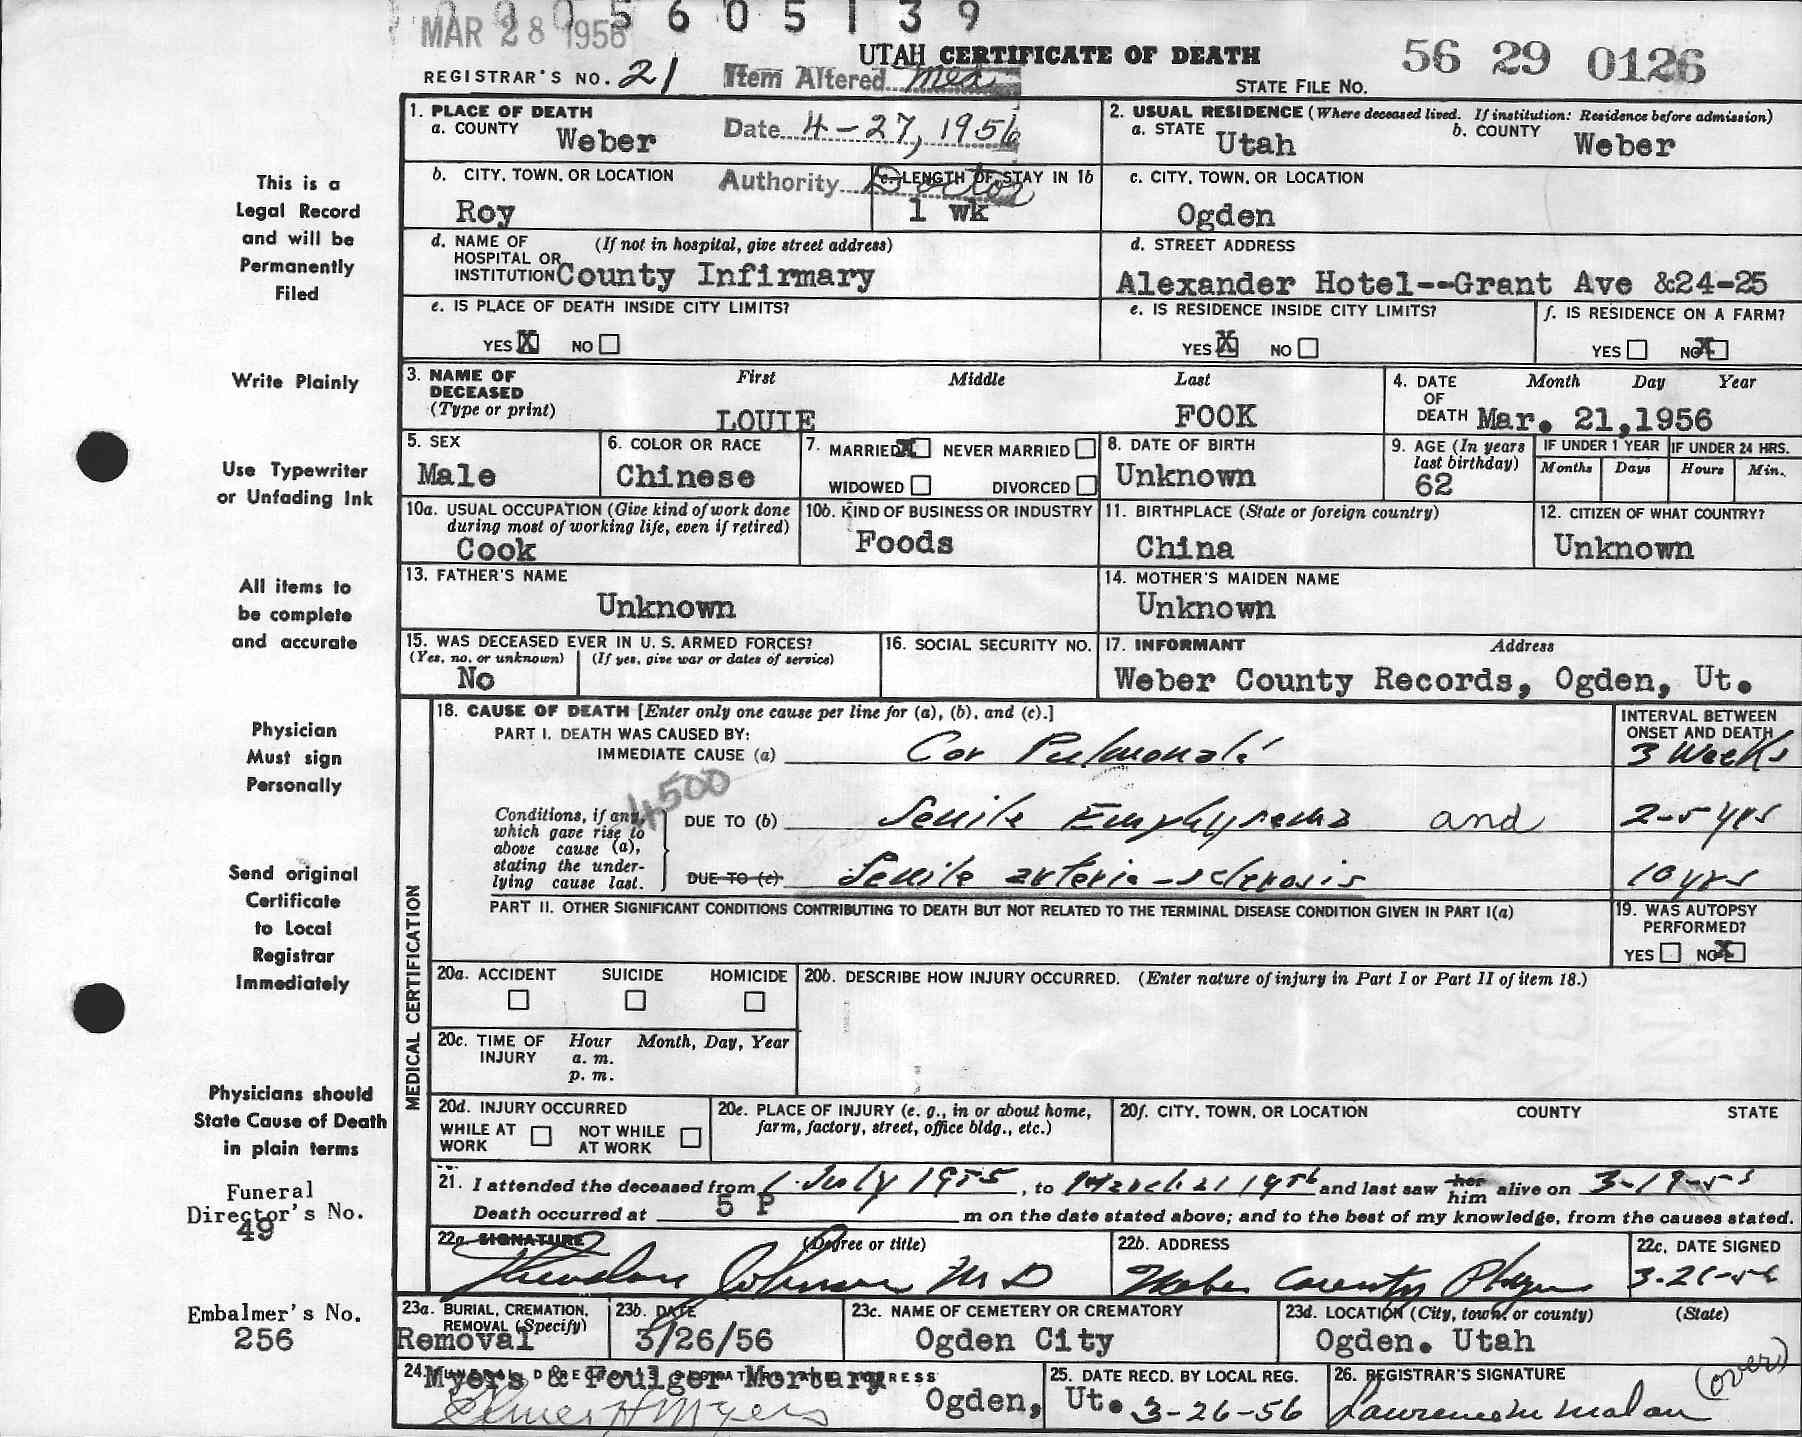 0005605139
MAR 28 1956
UTAH CERTIFICATE OF DEATH
56 29 0126
REGISTRAR'S NO. 21
Item Altered Med
STATE FILE No.
1. PLACE OF DEATH
a. COUNTY Weber
Date 4-27, 1956
2. USUAL RESIDENCE (Where deceased lived. If institution: Residence before admission)
a. STATE Utah
b. COUNTY Weber
b. CITY, TOWN, OR LOCATION
Roy
Authority Doctor
c. LENGTH OF STAY IN 1b
1 wk
c. CITY, TOWN, OR LOCATION
Ogden
d. NAME OF HOSPITAL OR INSTITUTION (If not in hospital, give street address)
County Infirmary
d. STREET ADDRESS
Alexander Hotel--Grant Ave &24-25
e. IS PLACE OF DEATH INSIDE CITY LIMITS?
YES X NO
e. IS RESIDENCE INSIDE CITY LIMITS?
YES X NO
f. IS RESIDENCE ON A FARM?
YES NO X
3. NAME OF DECEASED (Type or print)
First Middle Last
LOUIE FOOK
4. DATE OF DEATH Month Day Year
Mar. 21,1956
5. SEX
Male
6. COLOR OR RACE
Chinese
7. MARRIED X NEVER MARRIED
WIDOWED DIVORCED
8. DATE OF BIRTH
Unknown
9. AGE (In years last birthday)
62
IF UNDER 1 YEAR
Months Days
IF UNDER 24 HRS.
Hours Min.
10a. USUAL OCCUPATION (Give kind of work done during most of working life, even if retired)
Cook
10b. KIND OF BUSINESS OR INDUSTRY
Foods
11. BIRTHPLACE (State or foreign country)
China
12. CITIZEN OF WHAT COUNTRY?
Unknown
13. FATHER'S NAME
Unknown
14. MOTHER'S MAIDEN NAME
Unknown
15. WAS DECEASED EVER IN U. S. ARMED FORCES?
(Yes, no, or unknown) (If yes, give war or dates of service)
No
16. SOCIAL SECURITY NO.
17. INFORMANT Address
Weber County Records, Ogden, Ut.
MEDICAL CERTIFICATION
18. CAUSE OF DEATH [Enter only one cause per line for (a), (b), and (c).]
PART I. DEATH WAS CAUSED BY:
IMMEDIATE CAUSE (a) Cor Pulmonale
INTERVAL BETWEEN ONSET AND DEATH
3 Weeks
4500
Conditions, if any, which gave rise to above cause (a), stating the underlying cause last.
DUE TO (b) Senile Emphysema and
2-5 yrs
DUE TO (c) Senile arterio-sclerosis
10 yrs
PART II. OTHER SIGNIFICANT CONDITIONS CONTRIBUTING TO DEATH BUT NOT RELATED TO THE TERMINAL DISEASE CONDITION GIVEN IN PART I(a)
19. WAS AUTOPSY PERFORMED?
YES NO X
20a. ACCIDENT SUICIDE HOMICIDE
20b. DESCRIBE HOW INJURY OCCURRED. (Enter nature of injury in Part I or Part II of item 18.)
20c. TIME OF INJURY Hour Month, Day, Year
a. m.
p. m.
20d. INJURY OCCURRED
WHILE AT WORK NOT WHILE AT WORK
20e. PLACE OF INJURY (e. g., in or about home, farm, factory, street, office bldg., etc.)
20f. CITY, TOWN, OR LOCATION COUNTY STATE
21. I attended the deceased from 1 July 1955, to March 21 1956 and last saw her him alive on 3-19-
Death occurred at 5 P m on the date stated above; and to the best of my knowledge, from the causes stated.
22a. SIGNATURE (Degree or title)
Johnson M D
22b. ADDRESS
Weber County
22c. DATE SIGNED
3-21-56
23a. BURIAL, CREMATION, REMOVAL (Specify)
Removal
23b. DATE
3/26/56
23c. NAME OF CEMETERY OR CREMATORY
Ogden City
23d. LOCATION (City, town, or county) (State)
Ogden. Utah
24. FUNERAL DIRECTOR'S SIGNATURE AND ADDRESS
Myers & Foulger Mortuary
Elmer H Myers
Ogden, Ut.
25. DATE RECD. BY LOCAL REG.
3-26-56
26. REGISTRAR'S SIGNATURE
Lawrence M Malan
(over)
This is a
Legal Record
and will be
Permanently
Filed
Write Plainly
Use Typewriter
or Unfading Ink
All items to
be complete
and accurate
Physician
Must sign
Personally
Send original
Certificate
to Local
Registrar
Immediately
Physicians should
State Cause of Death
in plain terms
Funeral
Director's No.
49
Embalmer's No.
256